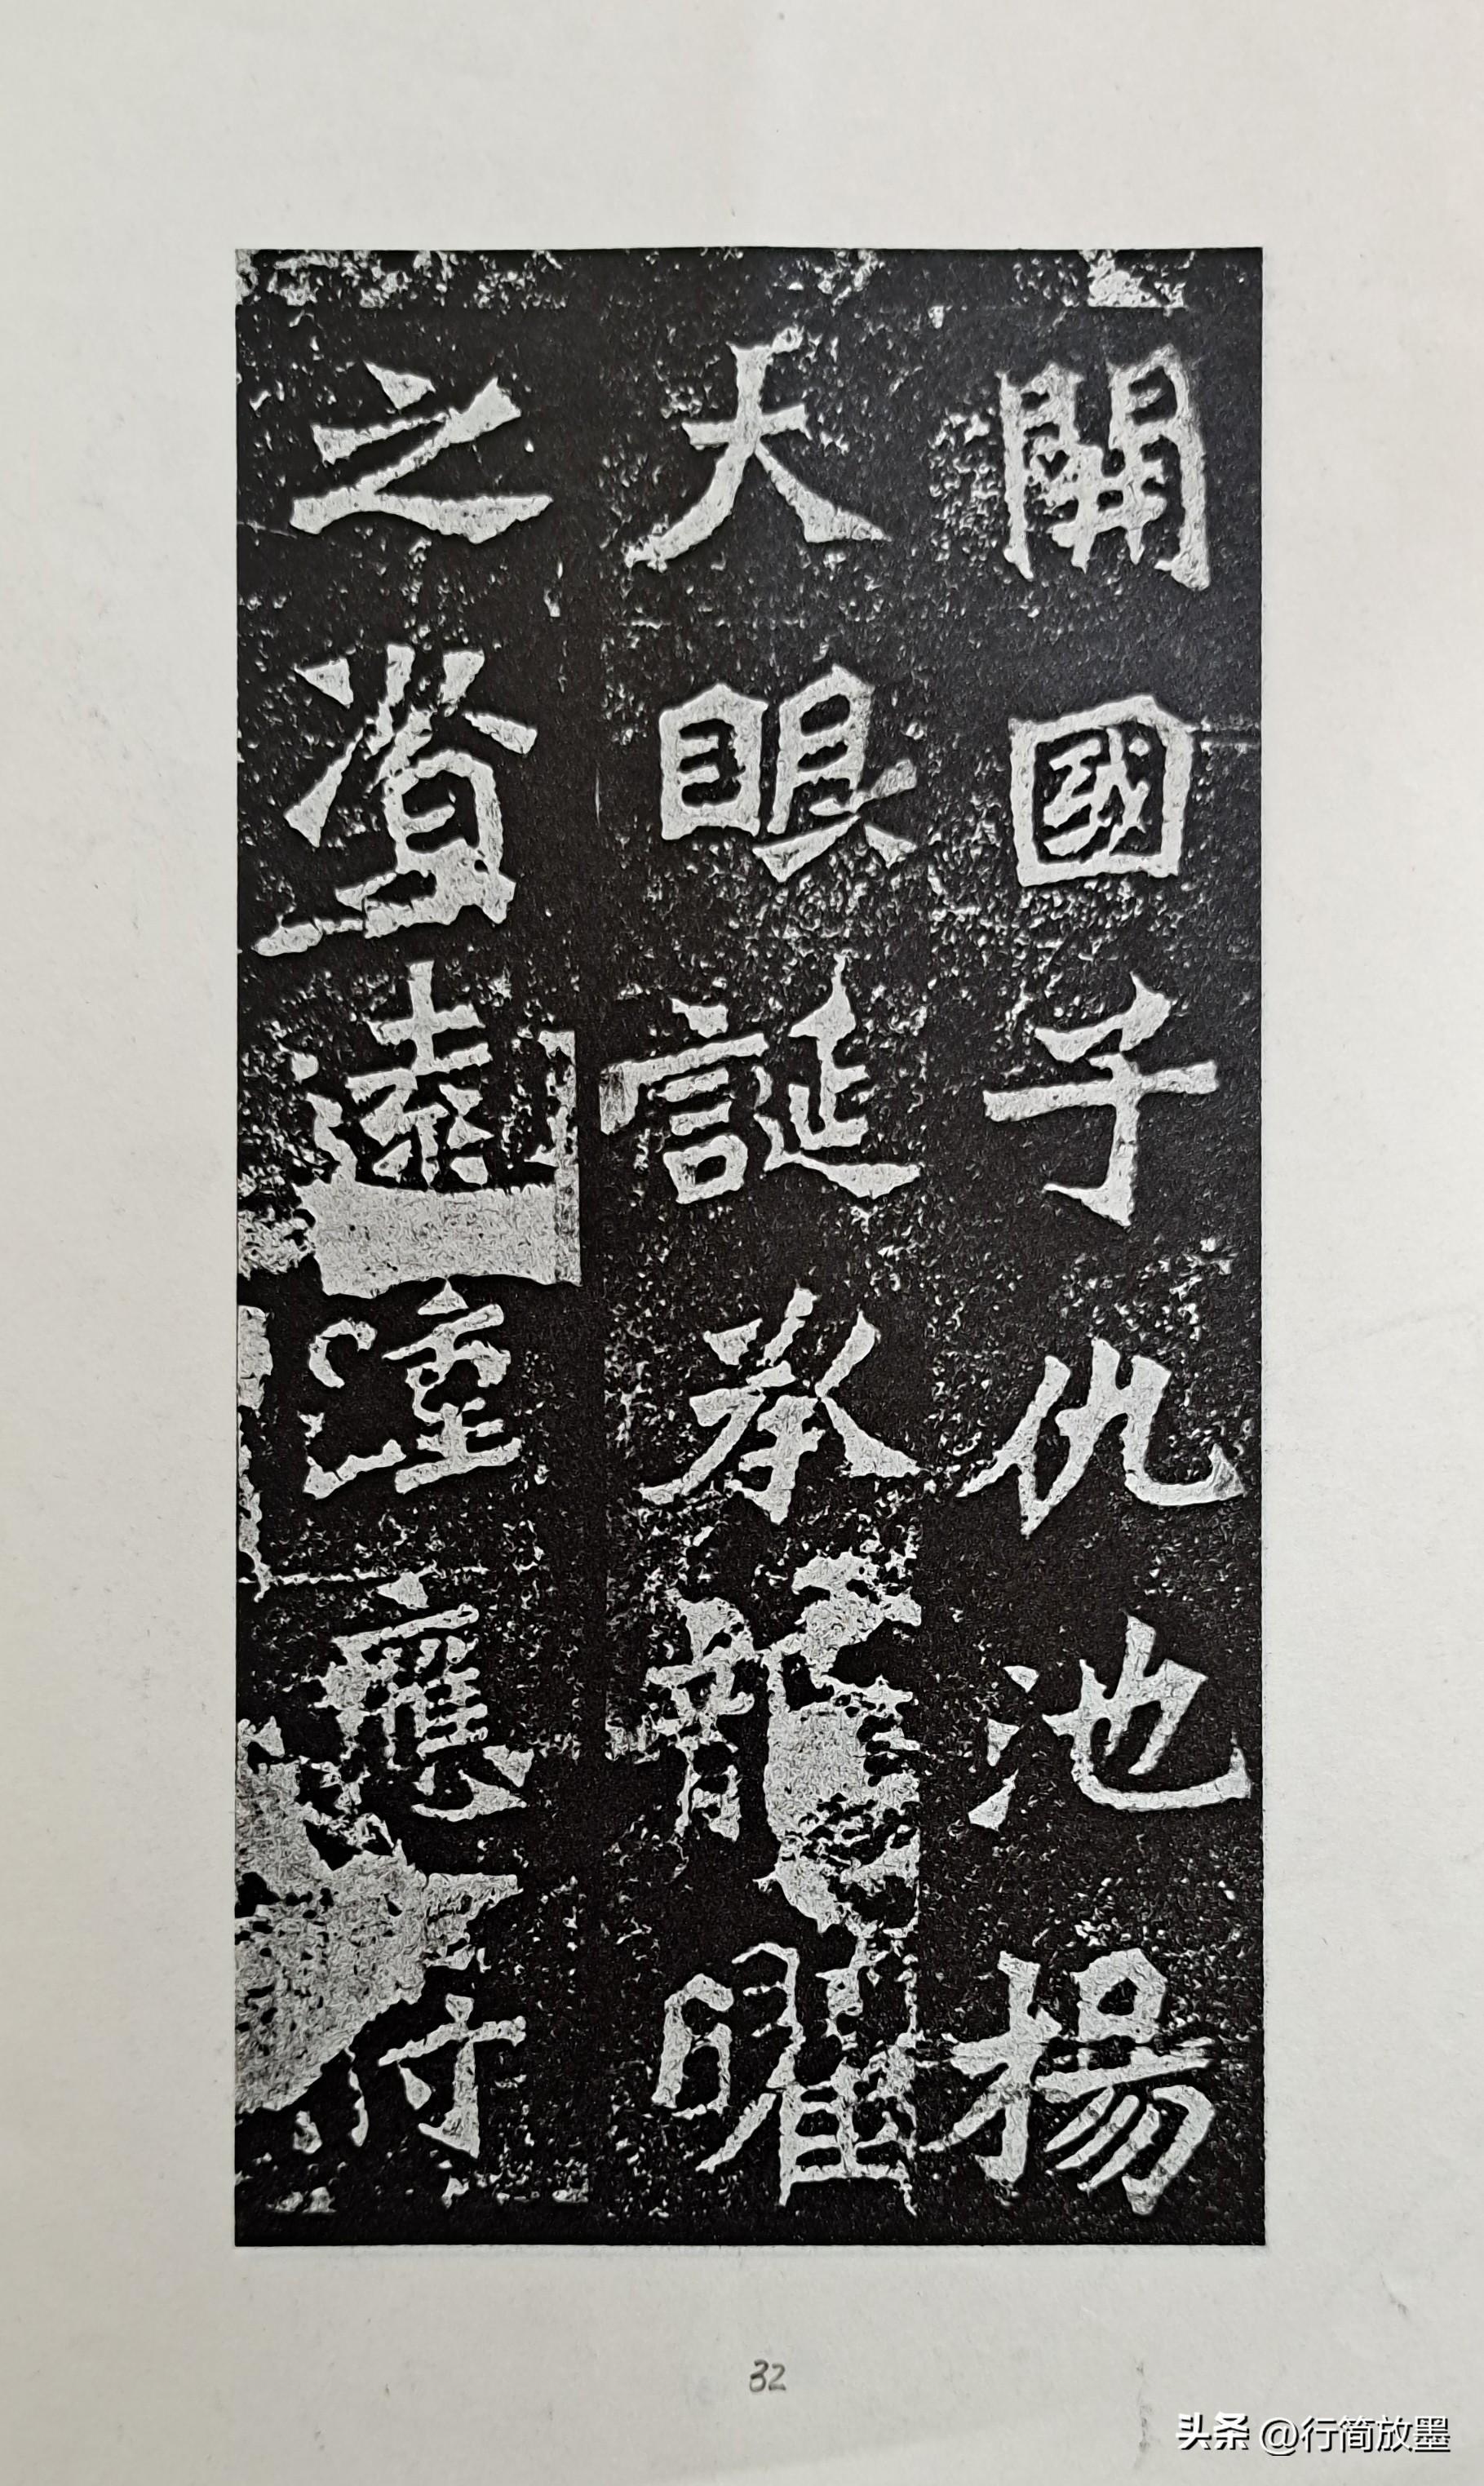 開國子仇池楊
大眼誕承龍曜
之資遠踵應符
32
头条 @行简放墨